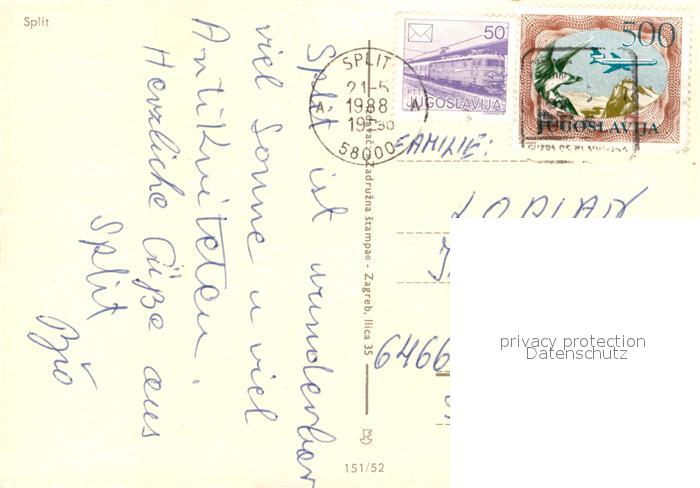 Split
Split ist wunderbar
viel Sonne u viel
Antikvitäten.
Herzliche Grüße aus
Split
SPLIT
21-5
1988
A A
58000
50
PTT
JUGOSLAVIJA
500
JUGOSLAVIJA
FAMILIE:
6466
Zadružna štampa - Zagreb, Ilica 35
151/52
privacy protection
Datenschutz